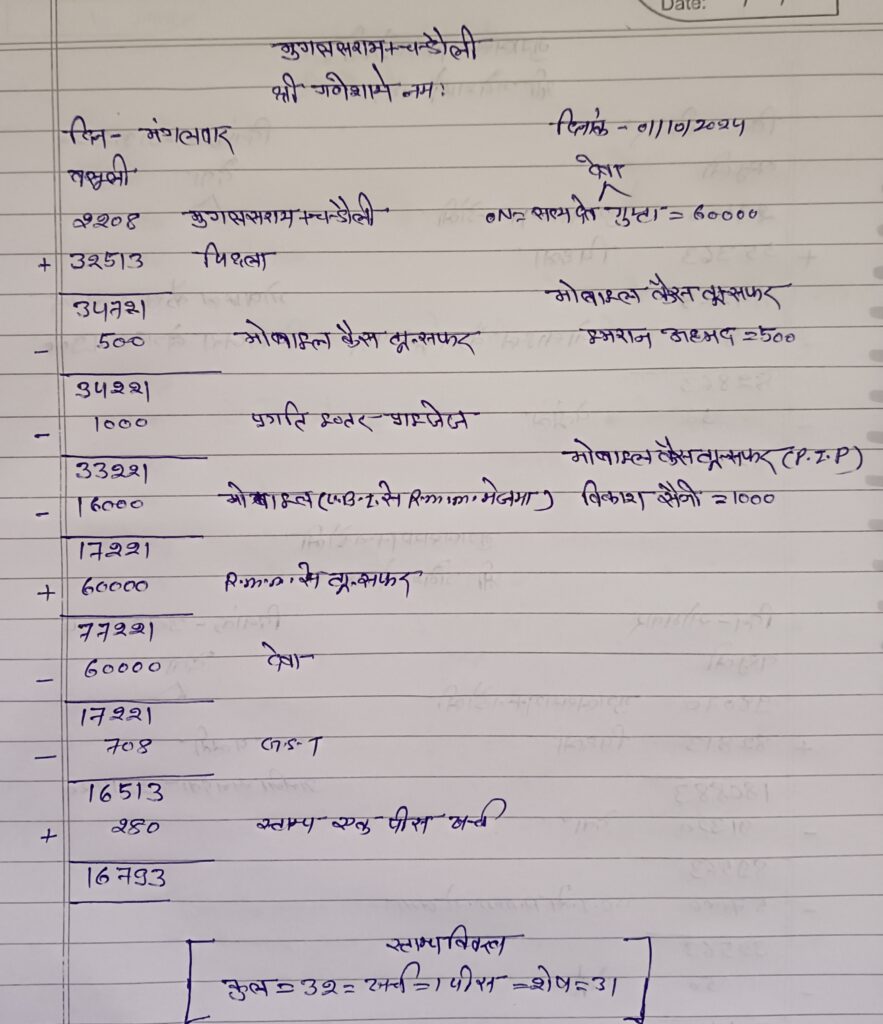 Date: / /
मुगलसराय + चन्दौली
श्री गणेशाये नमः
दिन - मंगलवार दिनांक - 01/10/2024
वसुली देवा
2208 मुगलसराय + चन्दौली ON= सत्य देव गुप्ता = 60000
+ 32513 पिछला
34721 मोबाइल कैस ट्रान्सफर
- 500 मोबाइल कैस ट्रान्सफर इमरान अहमद = 500
34221
- 1000 प्रगति इन्टर-प्राइजेज
33221 मोबाइल कैस ट्रान्सफर (P.I.P)
- 16000 मोबाइल (U.B.I. से R.m.m. भेजगा) विकाश सैनी = 1000
17221
+ 60000 R.m.m. से ट्रान्सफर
77221
- 60000 देवा
17221
- 708 G.S.T
16513
+ 280 स्ताम्प एक पीस खर्च
16793
स्ताम्प विवरण
कुल = 32 = खर्च = 1 पीस = शेष = 31